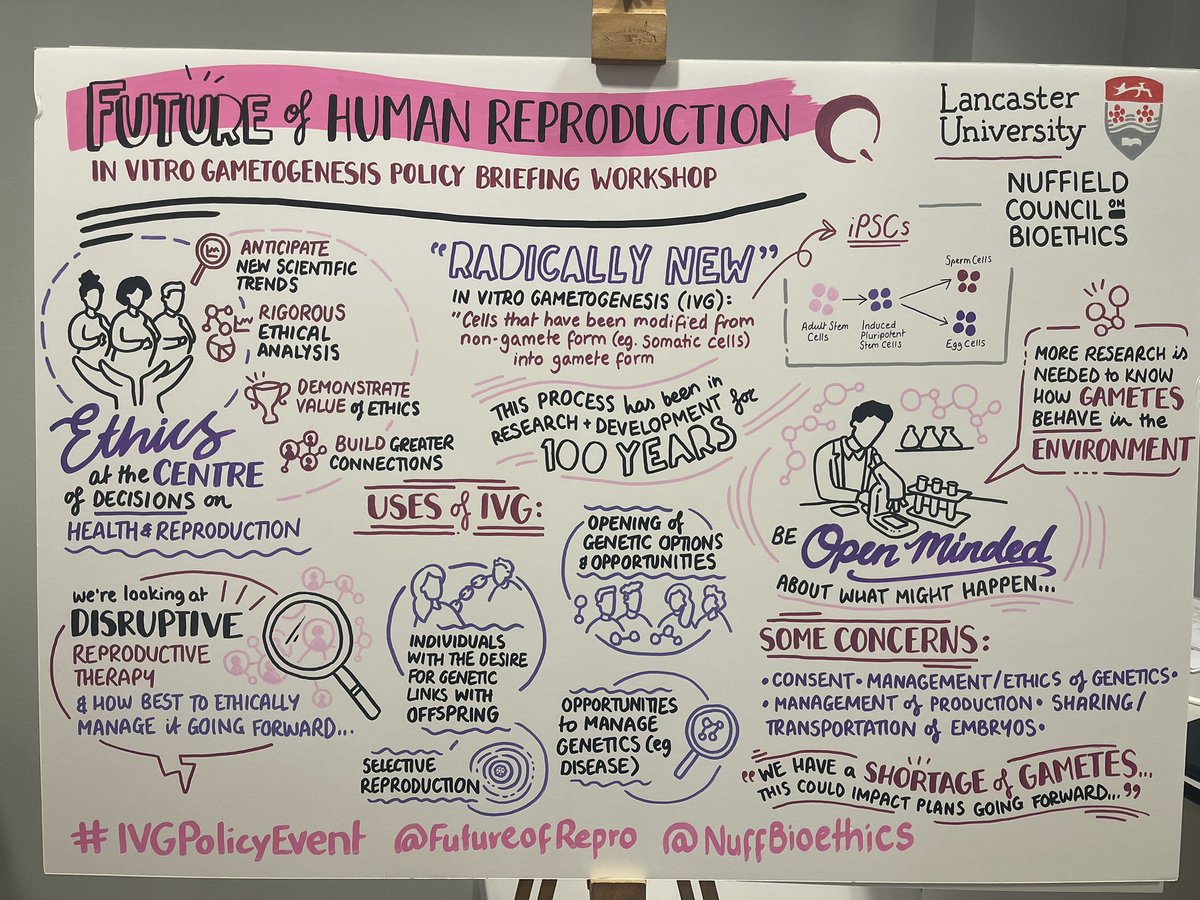 FUTURE of HUMAN REPRODUCTION
IN VITRO GAMETOGENESIS POLICY BRIEFING WORKSHOP
Lancaster
University
NUFFIELD
COUNCIL ON
BIOETHICS
ANTICIPATE
NEW SCIENTIFIC
TRENDS
RIGOROUS
ETHICAL
ANALYSIS
DEMONSTRATE
VALUE of ETHICS
BUILD GREATER
CONNECTIONS
Ethics
at the CENTRE
of DECISIONS on
HEALTH & REPRODUCTION
"RADICALLY NEW"
IN VITRO GAMETOGENESIS (IVG):
"Cells that have been modified from
non-gamete form (eg. somatic cells)
into gamete form
iPSCs
Sperm Cells
Adult Stem
Cells
Induced
Pluripotent
Stem Cells
Egg Cells
THIS PROCESS has been in
RESEARCH + DEVELOPMENT for
100 YEARS
MORE RESEARCH is
NEEDED to KNOW
HOW GAMETES
BEHAVE in the
ENVIRONMENT
BE Open Minded
ABOUT WHAT MIGHT HAPPEN...
we're looking at
DISRUPTIVE
REPRODUCTIVE
THERAPY
& HOW BEST TO ETHICALLY
MANAGE it GOING FORWARD...
USES of IVG:
INDIVIDUALS
WITH THE DESIRE
FOR GENETIC
LINKS WITH
OFFSPRING
SELECTIVE
REPRODUCTION
OPENING of
GENETIC OPTIONS
& OPPORTUNITIES
OPPORTUNITIES
to MANAGE
GENETICS (eg
DISEASE)
SOME CONCERNS:
• CONSENT • MANAGEMENT/ETHICS of GENETICS •
• MANAGEMENT of PRODUCTION • SHARING/
TRANSPORTATION of EMBRYOS •
"WE HAVE a SHORTAGE of GAMETES...
THIS COULD IMPACT PLANS GOING FORWARD..."
#IVGPolicyEvent @FutureofRepro @NuffBioethics